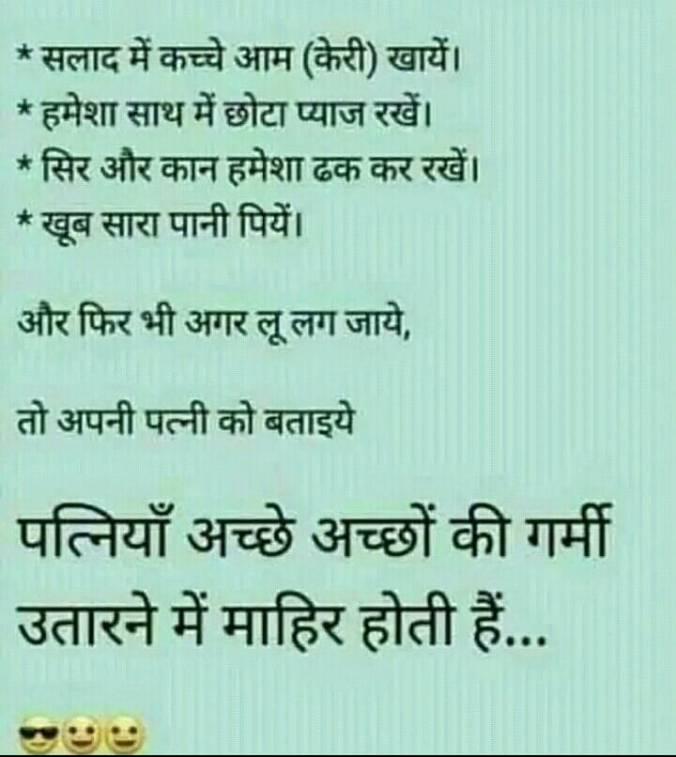 * सलाद में कच्चे आम (केरी) खायें।
* हमेशा साथ में छोटा प्याज रखें।
* सिर और कान हमेशा ढक कर रखें।
* खूब सारा पानी पियें।
और फिर भी अगर लू लग जाये,
तो अपनी पत्नी को बताइये
पत्नियाँ अच्छे अच्छों की गर्मी
उतारने में माहिर होती हैं...
😎😃😃